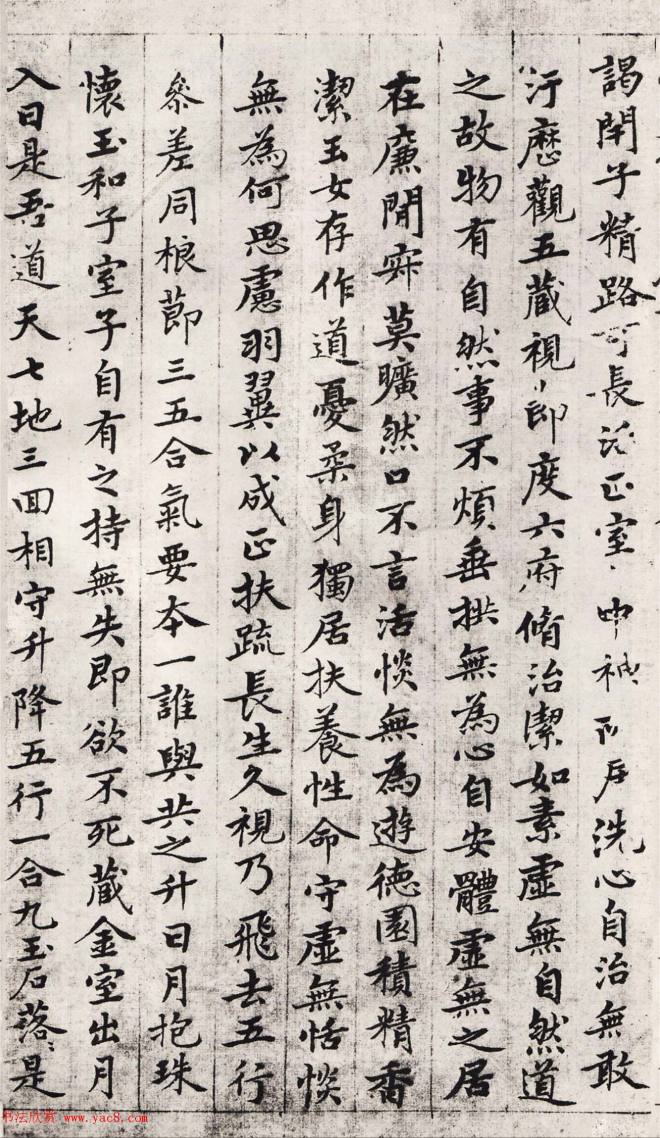 謁閉子精路可長活正室中神所居洗心自治無敢
汙歷觀五藏視節度六府脩治潔如素虛無自然道
之故物有自然事不煩垂拱無為心自安體虛無之居
在廉間寂莫曠然口不言活惔無為遊德園積精香
潔玉女存作道憂柔身獨居扶養性命守虛無恬惔
無為何思慮羽翼以成正扶疏長生久視乃飛去五行
參差同根蔀三五合氣要本一誰與共之升日月抱珠
懷玉和子室子自有之持無失即欲不死藏金室出月
入日是吾道天七地三回相守升降五行一合九玉石落〻是
书法欣赏 www.yac8.com